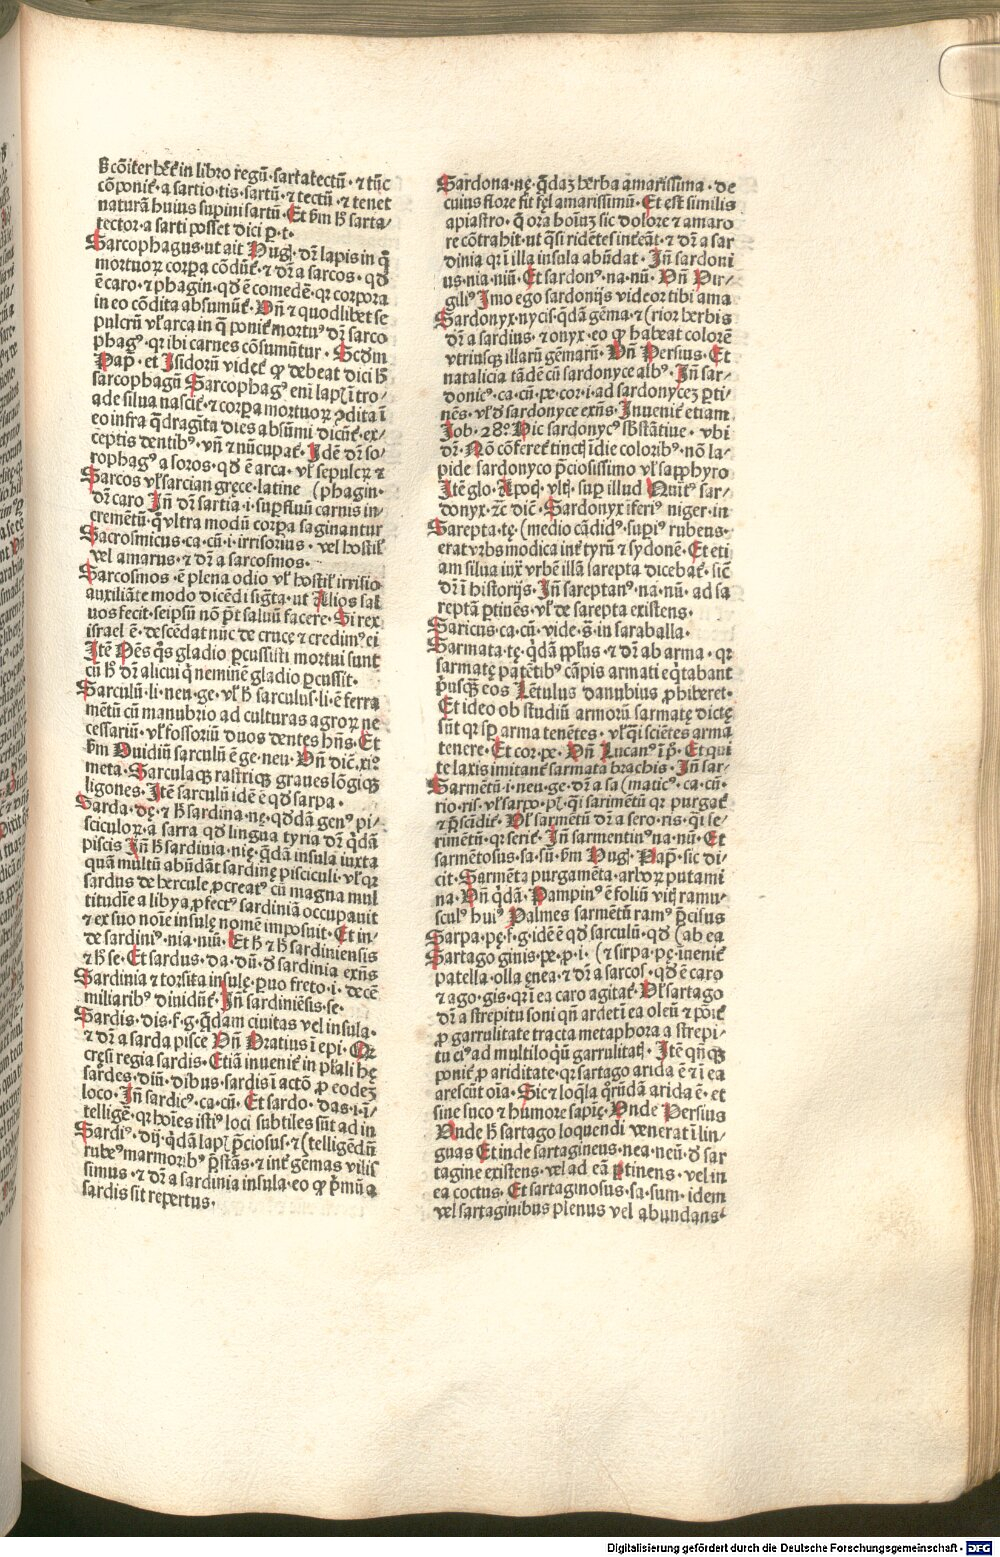 cōiter hēt in libro regū· sartatectū· ⁊ tūc
cōponit̄· a sartio·tis·sartū·⁊ tectū·⁊ tenet
naturā huius supini sartū· Et ẜm ħ sarta/
tector·a sarti posset dici ꝑ·t·
Sarcophagus·ut ait Hug᷒· dr̄ lapis in q̄
mortuoꝝ corꝑa cōdūt̄·⁊ dr̄ a sarcos·qd̄
ē caro·⁊ phagin·qd̄ ē comedē·qꝛ corpora
in eo cōdita absumūt̄· Vn̄ ⁊ quodlibet se
pulcrū vl̓ arca in q̄ ponit̄ mortuꝰ dr̄ sarco
phagꝰ·qꝛ ibi carnes cōsumūtur· Scd̄m
Pap̄· et Isidorū videt̄ ꝙ debeat dici ħ
sarcophagū Sarcophagꝰ eni lapꝭ ī tro/
ade silua nascit̄·⁊ corꝑa mortuoꝝ ꝯdita ī
eo infra q̄dragīta dies absūmi dicūt̄·ex/
ceptis dentibꝰ·vn̄ ⁊ nūcupat̄· Idē dr̄ so/
rophagꝰ a soros·qd̄ ē arca·vl̓ sepulcꝝ ⁊
Sarcos vl̓ sarcian grece·latine (phagin·
dr̄ caro In̄ dr̄ sartia·i·suꝑfluū carnis in/
cremētū·q̄ vltra modū corꝑa saginantur
Sacrosmicus·ca·cū·i·irrisorius·vel hostil̓
vel amarus·⁊ dr̄ a sarcosmos·
Sarcosmos·ē plena odio vl̓ hostil̓ irrisio
auxiliāte modo dicēdi sigt̄a·ut Alios sal
uos fecit·seipsū nō p̄t saluū facere· Si rex
israel ē·descēdat nūc de cruce ⁊ credimꝰ ei
Itē Vēs q̄s gladio ꝑcussisti mortui sunt
cū ħ dr̄ alicui q̄ neminē gladio ꝑcussit·
Sarculū·li·neu·ge·vl̓ ħ sarculus·li·ē ferra
mētū cū manubrio ad culturas agroꝝ ne
cessariū·vl̓ fossoriū duos dentes hn̄s· Et
ẜm Ouidiū sarculū ē ge·neu· Vn̄ dic̄·xiꝰ
meta· Sarculaqꝫ rastriqꝫ graues lōgiqꝫ
ligones· Itē sarculū idē ē qd̄ sarpa·
Sarda·dę·⁊ ħ sardina·nę·qd̄dā genꝰ pi/
sciculoꝝ·a sarra qd̄ lingua tyria dr̄ q̄dā
piscis In̄ ħ sardinia·nię·q̄dā insula iuxta
quā multū abūdāt sardinę pisciculi·vl̓ qꝛ
sardus de hercule ꝓcreatꝰ cū magna mul
titudīe a libya ꝓfectꝰ sardiniā occupauit
⁊ ex suo noīe insulę nomē imposuit· Et in/
de sardinꝰ·nia·niū· Et ħ ⁊ ħ sardiniensis
⁊ ħ se· Et sardus·da·dū·d̄ sardinia exn̄s
Sardinia ⁊ torsita insulę ꝑuo freto·i·decē
miliaribꝰ diuidūt̄· In̄ sardiniēsis·se·
Sardis·dis·f·g·q̄dam ciuitas vel insula·
⁊ dr̄ a sarda pisce Vn̄ Oratius ī epi· Qꝛ
cresi regia sardis· Etiā inuenit̄ in pl̓ali hę
sardes·diū·dibus·sardis ī actō ꝓ eodeꝫ
loco· In̄ sardicꝰ·ca·cū· Et sardo·das·i·ī/
telligē·qꝛ hoīes istiꝰ loci subtiles sūt ad in
Sardiꝰ·dij·q̄dā lapꝭ p̄ciosus·⁊ (telligēdū
rubeꝰ marmoribꝰ p̄stās·⁊ int̄ gēmas vilis
simus·⁊ dr̄ a sardinia insula·eo ꝙ p̄mū a
sardis sit repertus·
Sardona·nę·q̄daꝫ herba amarissima·de
cuius flore fit fel̓ amarissimū· Et est similis
apiastro·q̄ ora hoīuꝫ sic dolore ⁊ amaro
re cōtrahit·ut q̄si ridētes int̄eāt·⁊ dr̄ a sar
dinia qꝛ ī illa insula abūdat· In̄ sardoni
us·nia·niū· Et sardonꝰ·na·nū· Vn̄ Vir/
giliꝰ Imo ego sardonijs videor tibi ama
Sardonyx·nycis·q̄dā gēma·⁊ (rior herbis
dr̄ a sardius·⁊ onyx·eo ꝙ habeat colorē
vtriusqꝫ illarū gēmarū· Vn̄ Persius· Et
natalicia tādē cū sardonyce albꝰ· In̄ sar/
donicꝰ·ca·cū·pe·cor·i·ad sardonyceꝫ ꝑti/
nēs·vl̓ d̄ sardonyce exn̄s· Inuenit̄ etiam
Job·28· Hic sardonycꝰ sb̄stātiue·vbi
dr̄· Nō cōferet̄ tinctꝭ īdie coloribꝰ·nō la/
pide sardonyco p̄ciosissimo vl̓ sapphyro
Itē glo· Apoc̄·vltꝭ·suꝑ illud Nuit̄ sar/
donyx·⁊c̄ dic̄· Sardonyx iferiꝰ niger·in
Sarepta·tę·(medio cādidꝰ·supiꝰ rubens·
erat vrbs modica int̄ tyrū ⁊ sydonē· Et eti
am silua iux̄ vrbē illā sarepta dicebat̄·sic̄
dr̄ ī historijs· In̄ sareptanꝰ·na·nū·ad sa
reptā ꝑtinēs·vl̓ de sarepta existens·
Saricus·ca·cū·vide·s̄·in saraballa·
Sarmata·tę·q̄dā pp̄lus·⁊ dr̄ ab arma·qꝛ
sarmatę patētibꝰ cāpis armati eq̄tabant
p̄usqꝫ eos Lētulus danubius ꝓhiberet·
Et ideo ob studiū armorū sarmatę dictę
sūt qꝛ sꝑ arma tenētes·vl̓ q̄i sciētes arma
tenere· Et cor·pe· Vn̄ Lucanꝰ ī p̄· Et qui
te laxis imitant̄ sarmata brachis· In̄ sar/
Sarmētū·i·neu·ge·dr̄ a sa (maticꝰ·ca·cū·
rio·ris·vl̓ sarpo·pꝭ·q̄i sarimētū qꝛ purgat̄
⁊ p̄scidit̄· Vl̓ sarmētū dr̄ a sero·ris·q̄i se/
rimētū·qꝛ serit̄· In̄ sarmentinꝰ·na·nū· Et
sarmētosus·sa·sū·ẜm Hug᷒· Pap̄·sic di/
cit· Sarmēta purgamēta·arboꝝ putami
na· Vn̄ q̄dā· Pampinꝰ ē foliū vitꝭ ramu/
sculꝰ huiꝰ Palmes sarmētū ramꝰ p̄cisus
Sarpa·pę·f·g·idē ē qd̄ sarculū·qd̄ (ab ea
Sartago·ginis·pe·ꝓ·i·(⁊ sirpa·pę·inenit̄
patella·olla ęnea·⁊ dr̄ a sarcos·qd̄ ē caro
⁊ ago·gis·qꝛ ī ea caro agitat̄· Vl̓ sartago
dr̄ a strepitu soni qn̄ ardet ī ea oleū ⁊ poīt̄
ꝓ garrulitate tracta metaphora a strepi/
tu eiꝰ ad multiloqū garrulitatꝭ· Itē qn̄qꝫ
ponit̄ ꝓ ariditate·qꝛ sartago arida ē ⁊ ī ea
arescūt oīa· Sic ⁊ loqla q̄rūdā arida ē·et
sine suco ⁊ humore sapię· Vnde Persius
Vnde ħ sartago loquendi venerat ī lin/
guas Et inde sartagineus·nea·neū·d̄ sar
tagine existens·vel ad eā ꝑtinens·vel in
ea coctus· Et sartaginosus·sa·sum·idem
vel sartaginibus plenus vel abundans·
Digitalisierung gefördert durch die Deutsche Forschungsgemeinschaft - DFG